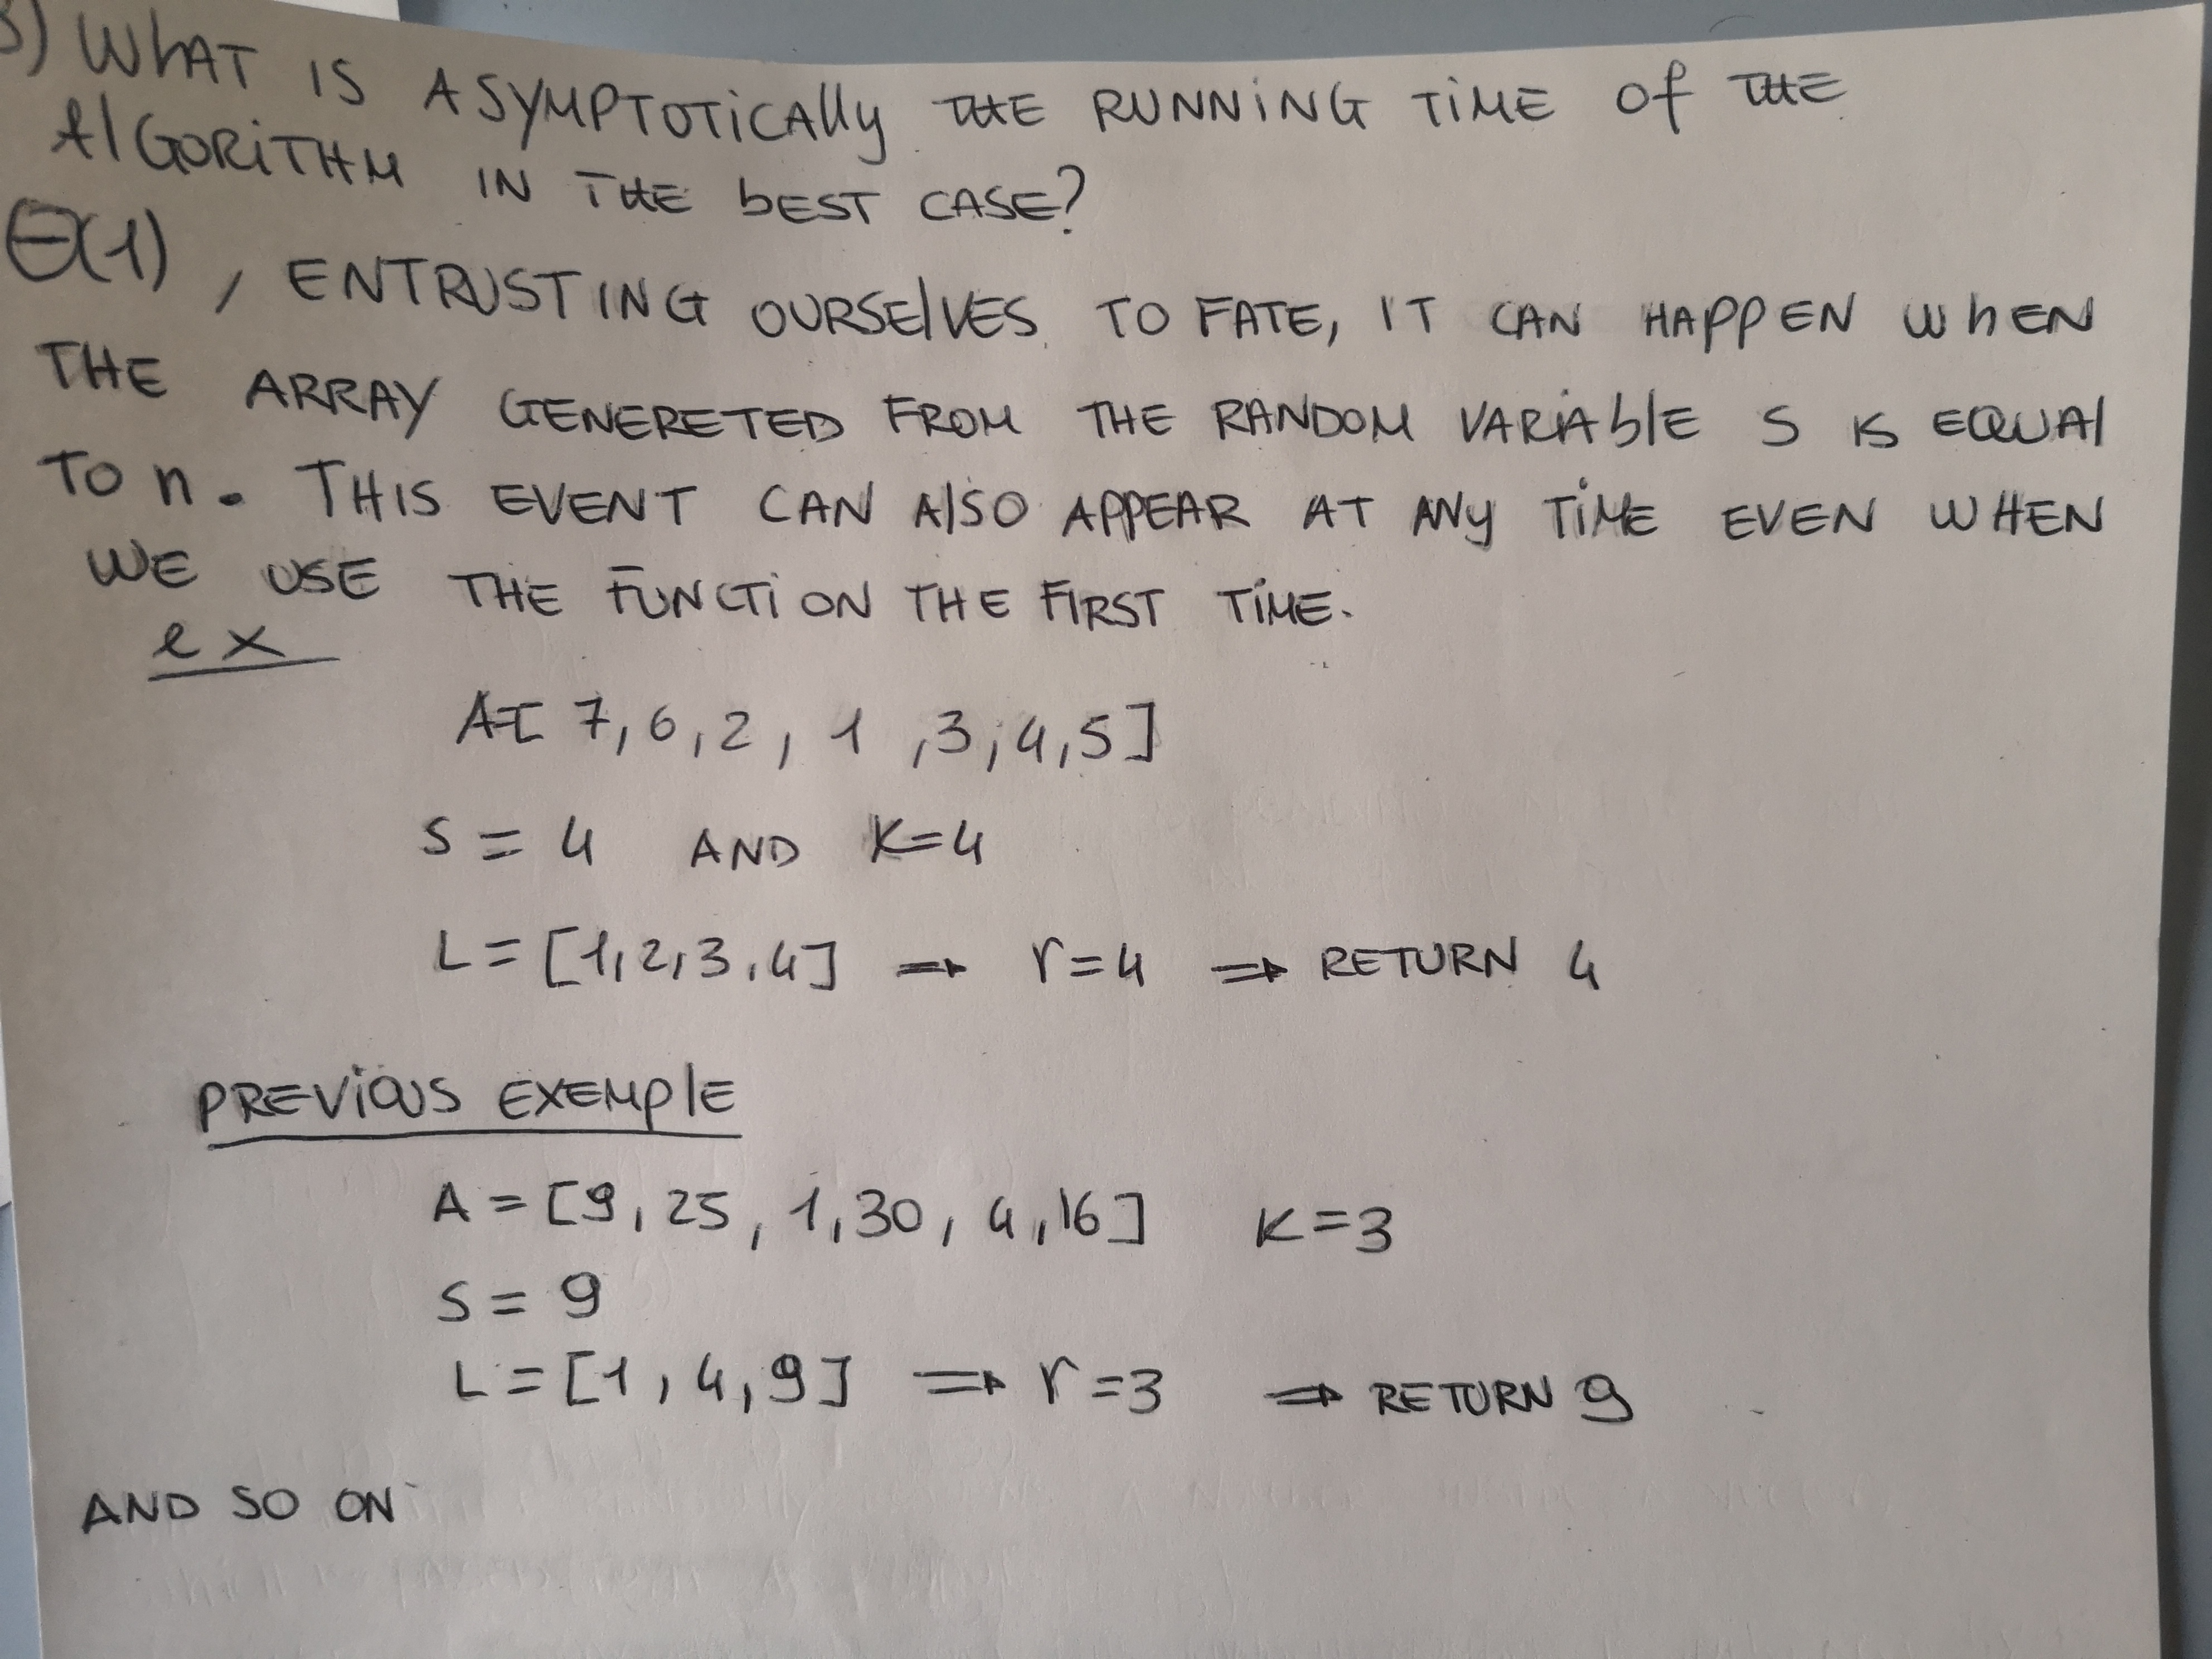 3) WHAT IS ASYMPTOTICAlly THE RUNNING TIME Of THE
AlGORITHM IN THE bEST CASE?
Θ(1), ENTRUSTING OURSElVES TO FATE, IT CAN HAPPEN WhEN
THE ARRAY GENERETED FROM THE RANDOM VARIAblE S IS EQUAl
TO n. THIS EVENT CAN AlSO APPEAR AT ANy TIME EVEN WHEN
WE USE THE FUNCTION THE FIRST TIME.
ex
A=[7,6,2,1,3,4,5]
S = 4 AND K=4
L=[1,2,3,4] ⇒ r=4 ⇒ RETURN 4
PREVIOUS EXEMplE
A=[9,25,1,30,4,16] K=3
S=9
L=[1,4,9] ⇒ r=3 ⇒ RETURN 9
AND SO ON